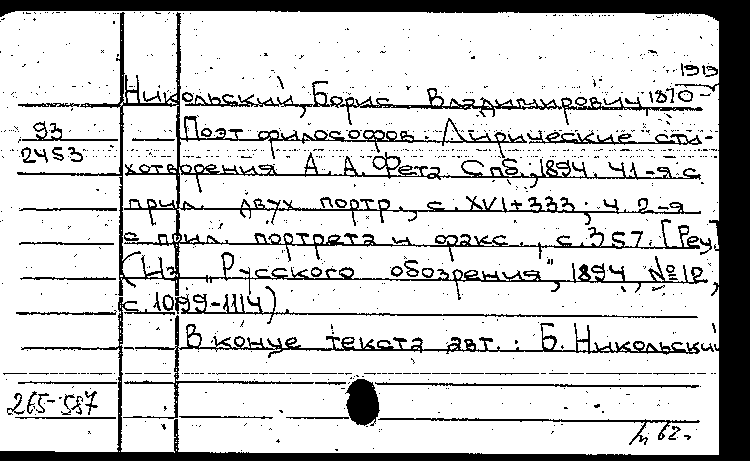 1919
Никольский, Борис Владимирович, 1870
93
2453
Поэт философов. Лирические сти-
хотворения А. А. Фета. Спб., 1894. Ч.1-я с
прил. двух портр., с. XVI+333; ч. 2-я
с прил. портрета и факс., с. 357. [Рец.]
(Из „Русского обозрения", 1894, № 12,
с. 1099-1114).
В конце текста авт.: Б. Никольский
265-587
62.